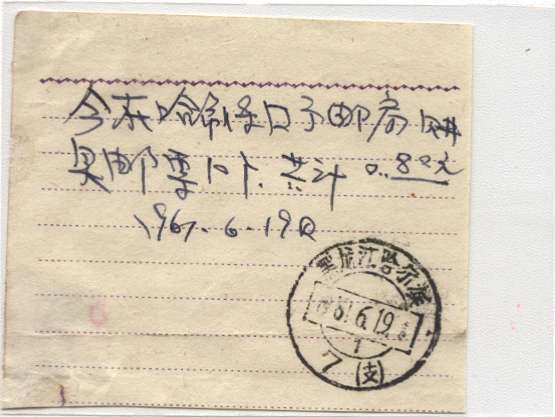 今在哈尔滨口子邮局购
买邮票10个.共计0.80元
1961.6.19日
黑龙江哈尔滨
61.6.19.
7(支)